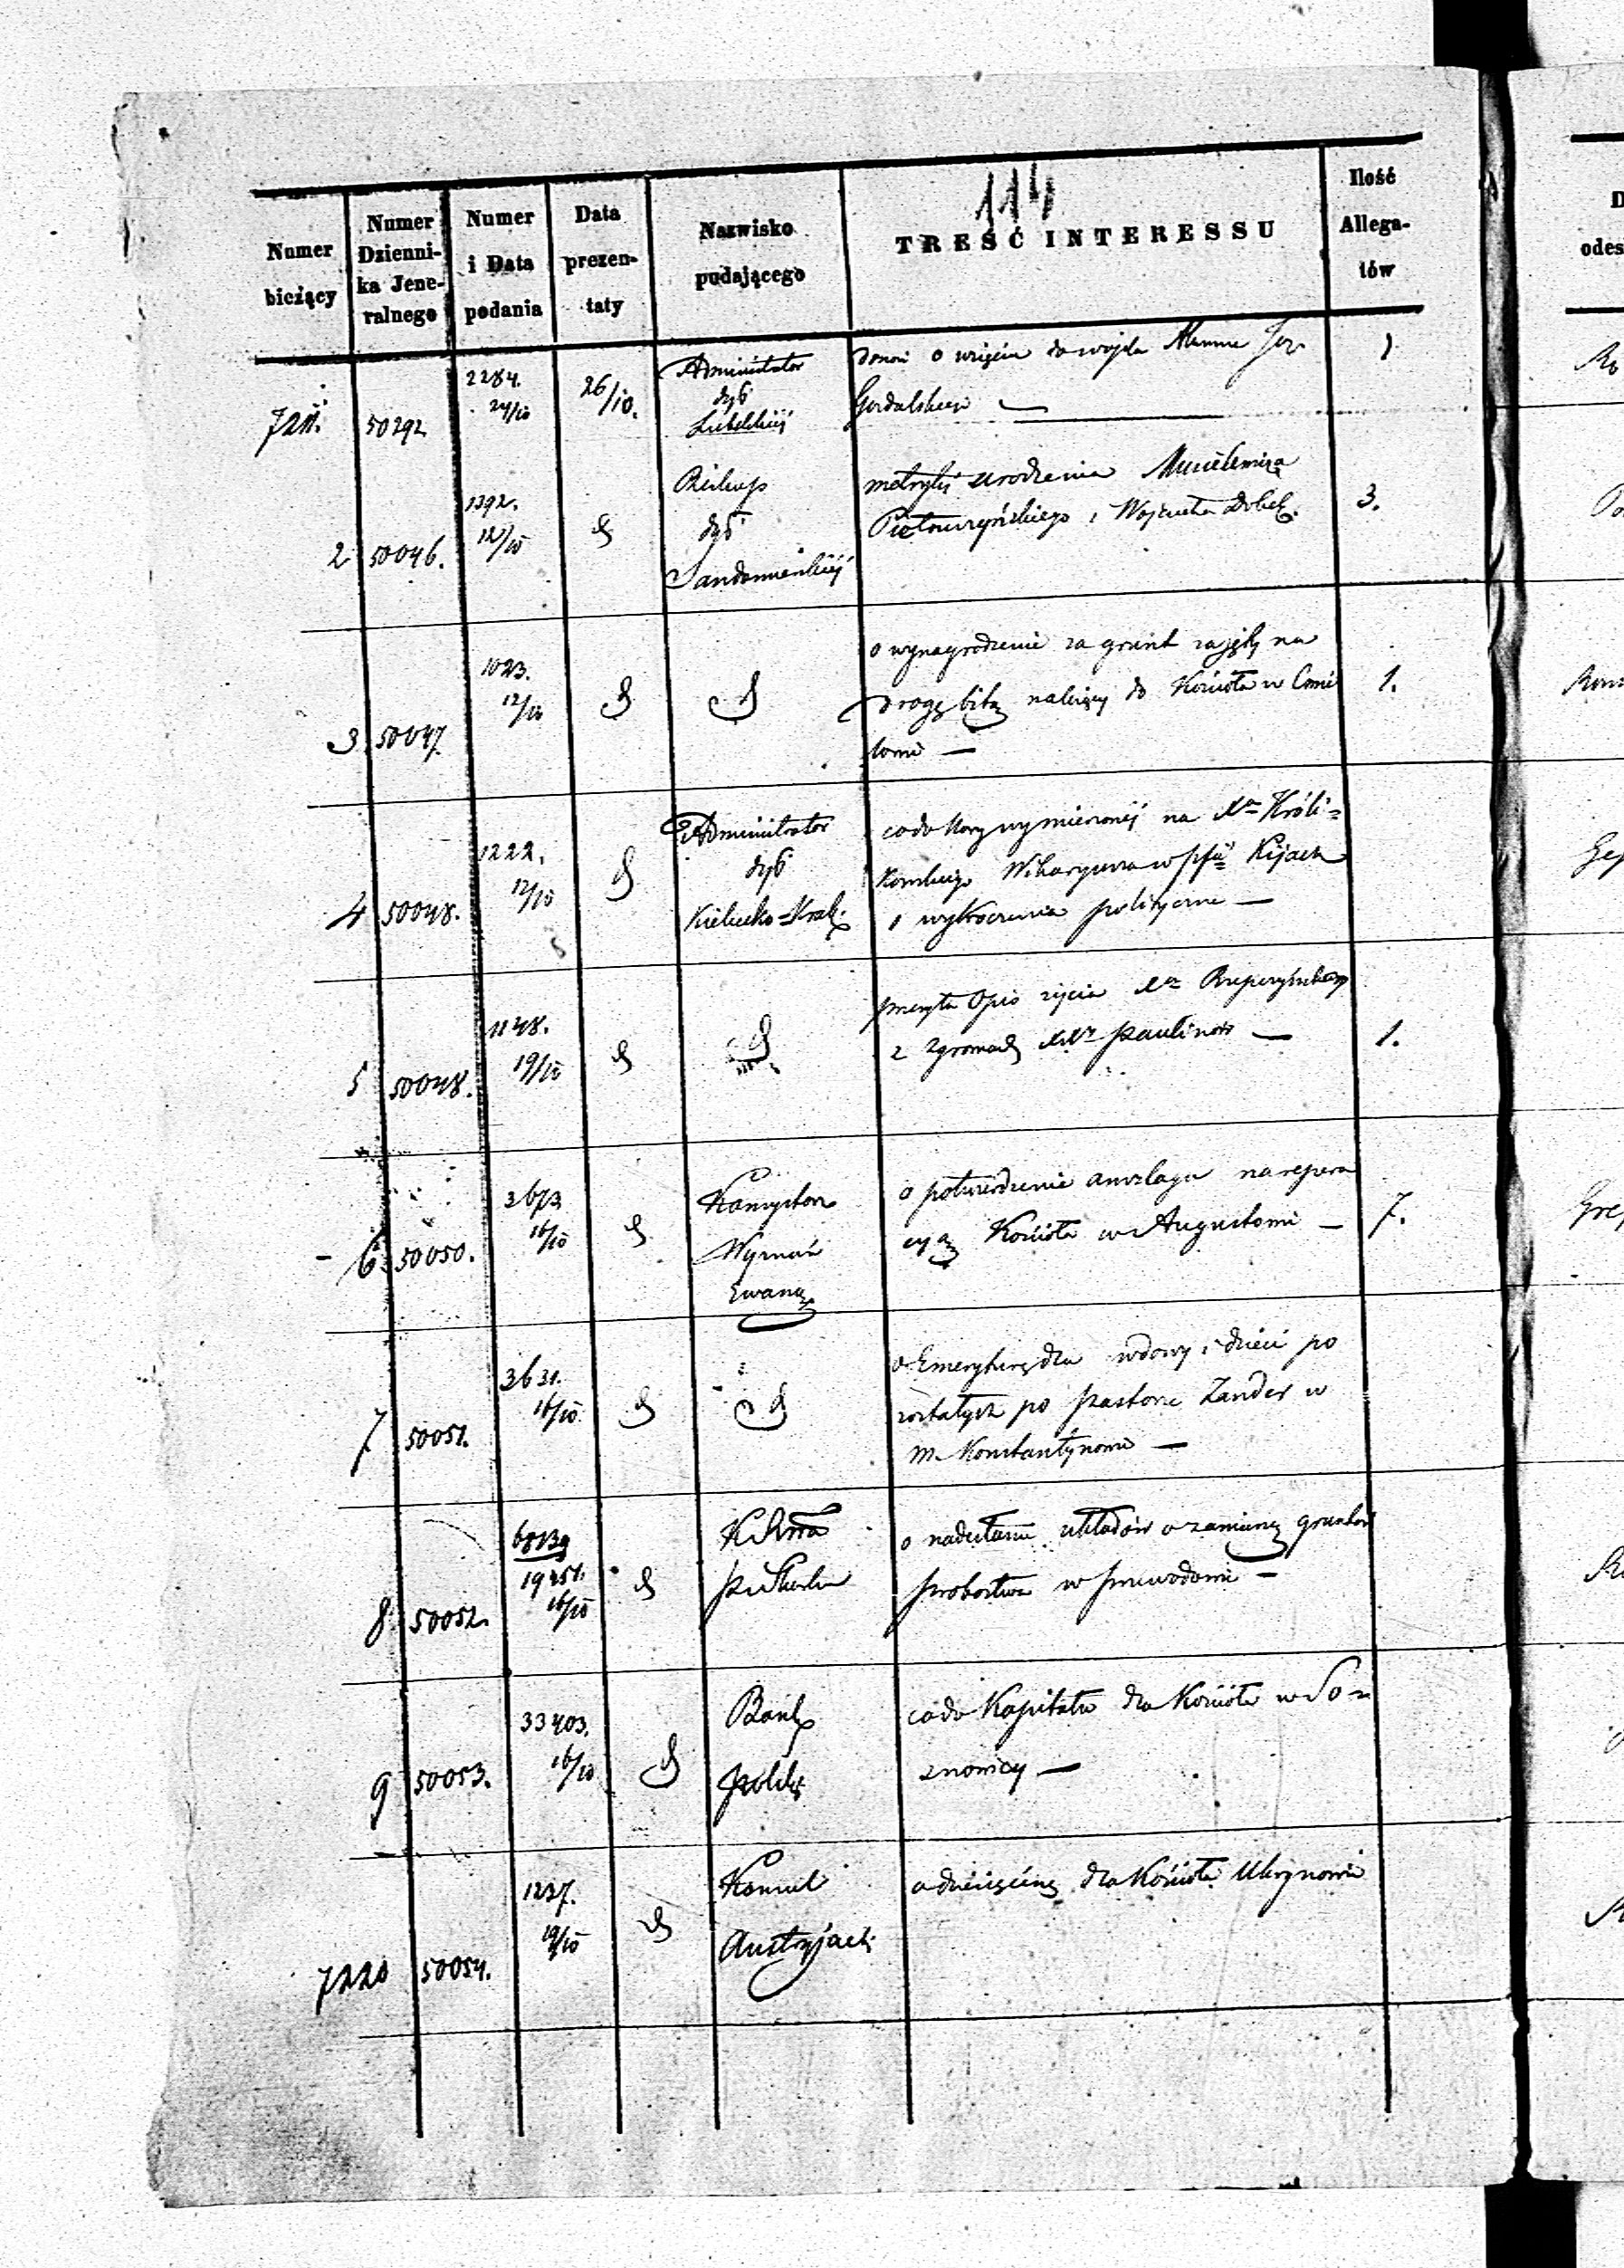 114
Numer bieżący
Numer Dzienni-ka Jene-ralnego
Numer i Data podania
Data prezen-taty
Nazwisko podającego
TREŚĆ INTERESSU
Ilość Allega-tów
7211. 50292 2284. 24/10 26/10. Administrator dyś Lubelskiéj
donosi o wzięciu do wojska Alumna
1
2 50046. 1392. 12/10 Biskup dyś Sandomierskiéj
metryki urodzenia
i Wojciecha
3.
3 50047. 1023. 12/10
o wynagrodzenie za grunt zajęty na
drogę bitą należący do Kościoła w Cmie
lowie —
1.
4 50048. 1222. 12/10 Administrator dyś Kielecko-Krak.
co do kary wymierzonéj na Xa Króli=
kowskiego Wikaryusza w Kijach
o wykroczenia polityczne —
5 50048. 1148. 19/10
przesyła Opis życia Xa
z Zgromadz XXów Paulinów —
1.
6 50050. 3673 16/10 Konsystorz Wyznań Ewang
o potwierdzenie anszlagu na repera
cyą Kościoła w Augustowie —
7.
7 50051. 3631. 16/10
o Emeryturę dla wdowy i dzieci po
zostałych po pastorze Zander w
m. Konstantynowie —
8 50052. 19251. 16/10
o nadesłanie układów o zamianę gruntów
probostwa w Przewodowie —
9 50053. 33403. 16/10 Bank Polski
co do Kapitału dla Kościoła w So=
znowicy —
7220 50054. 1237. 19/10 Konsul Austryjacki
o dziesięcinę dla Kościoła Uhrynowie